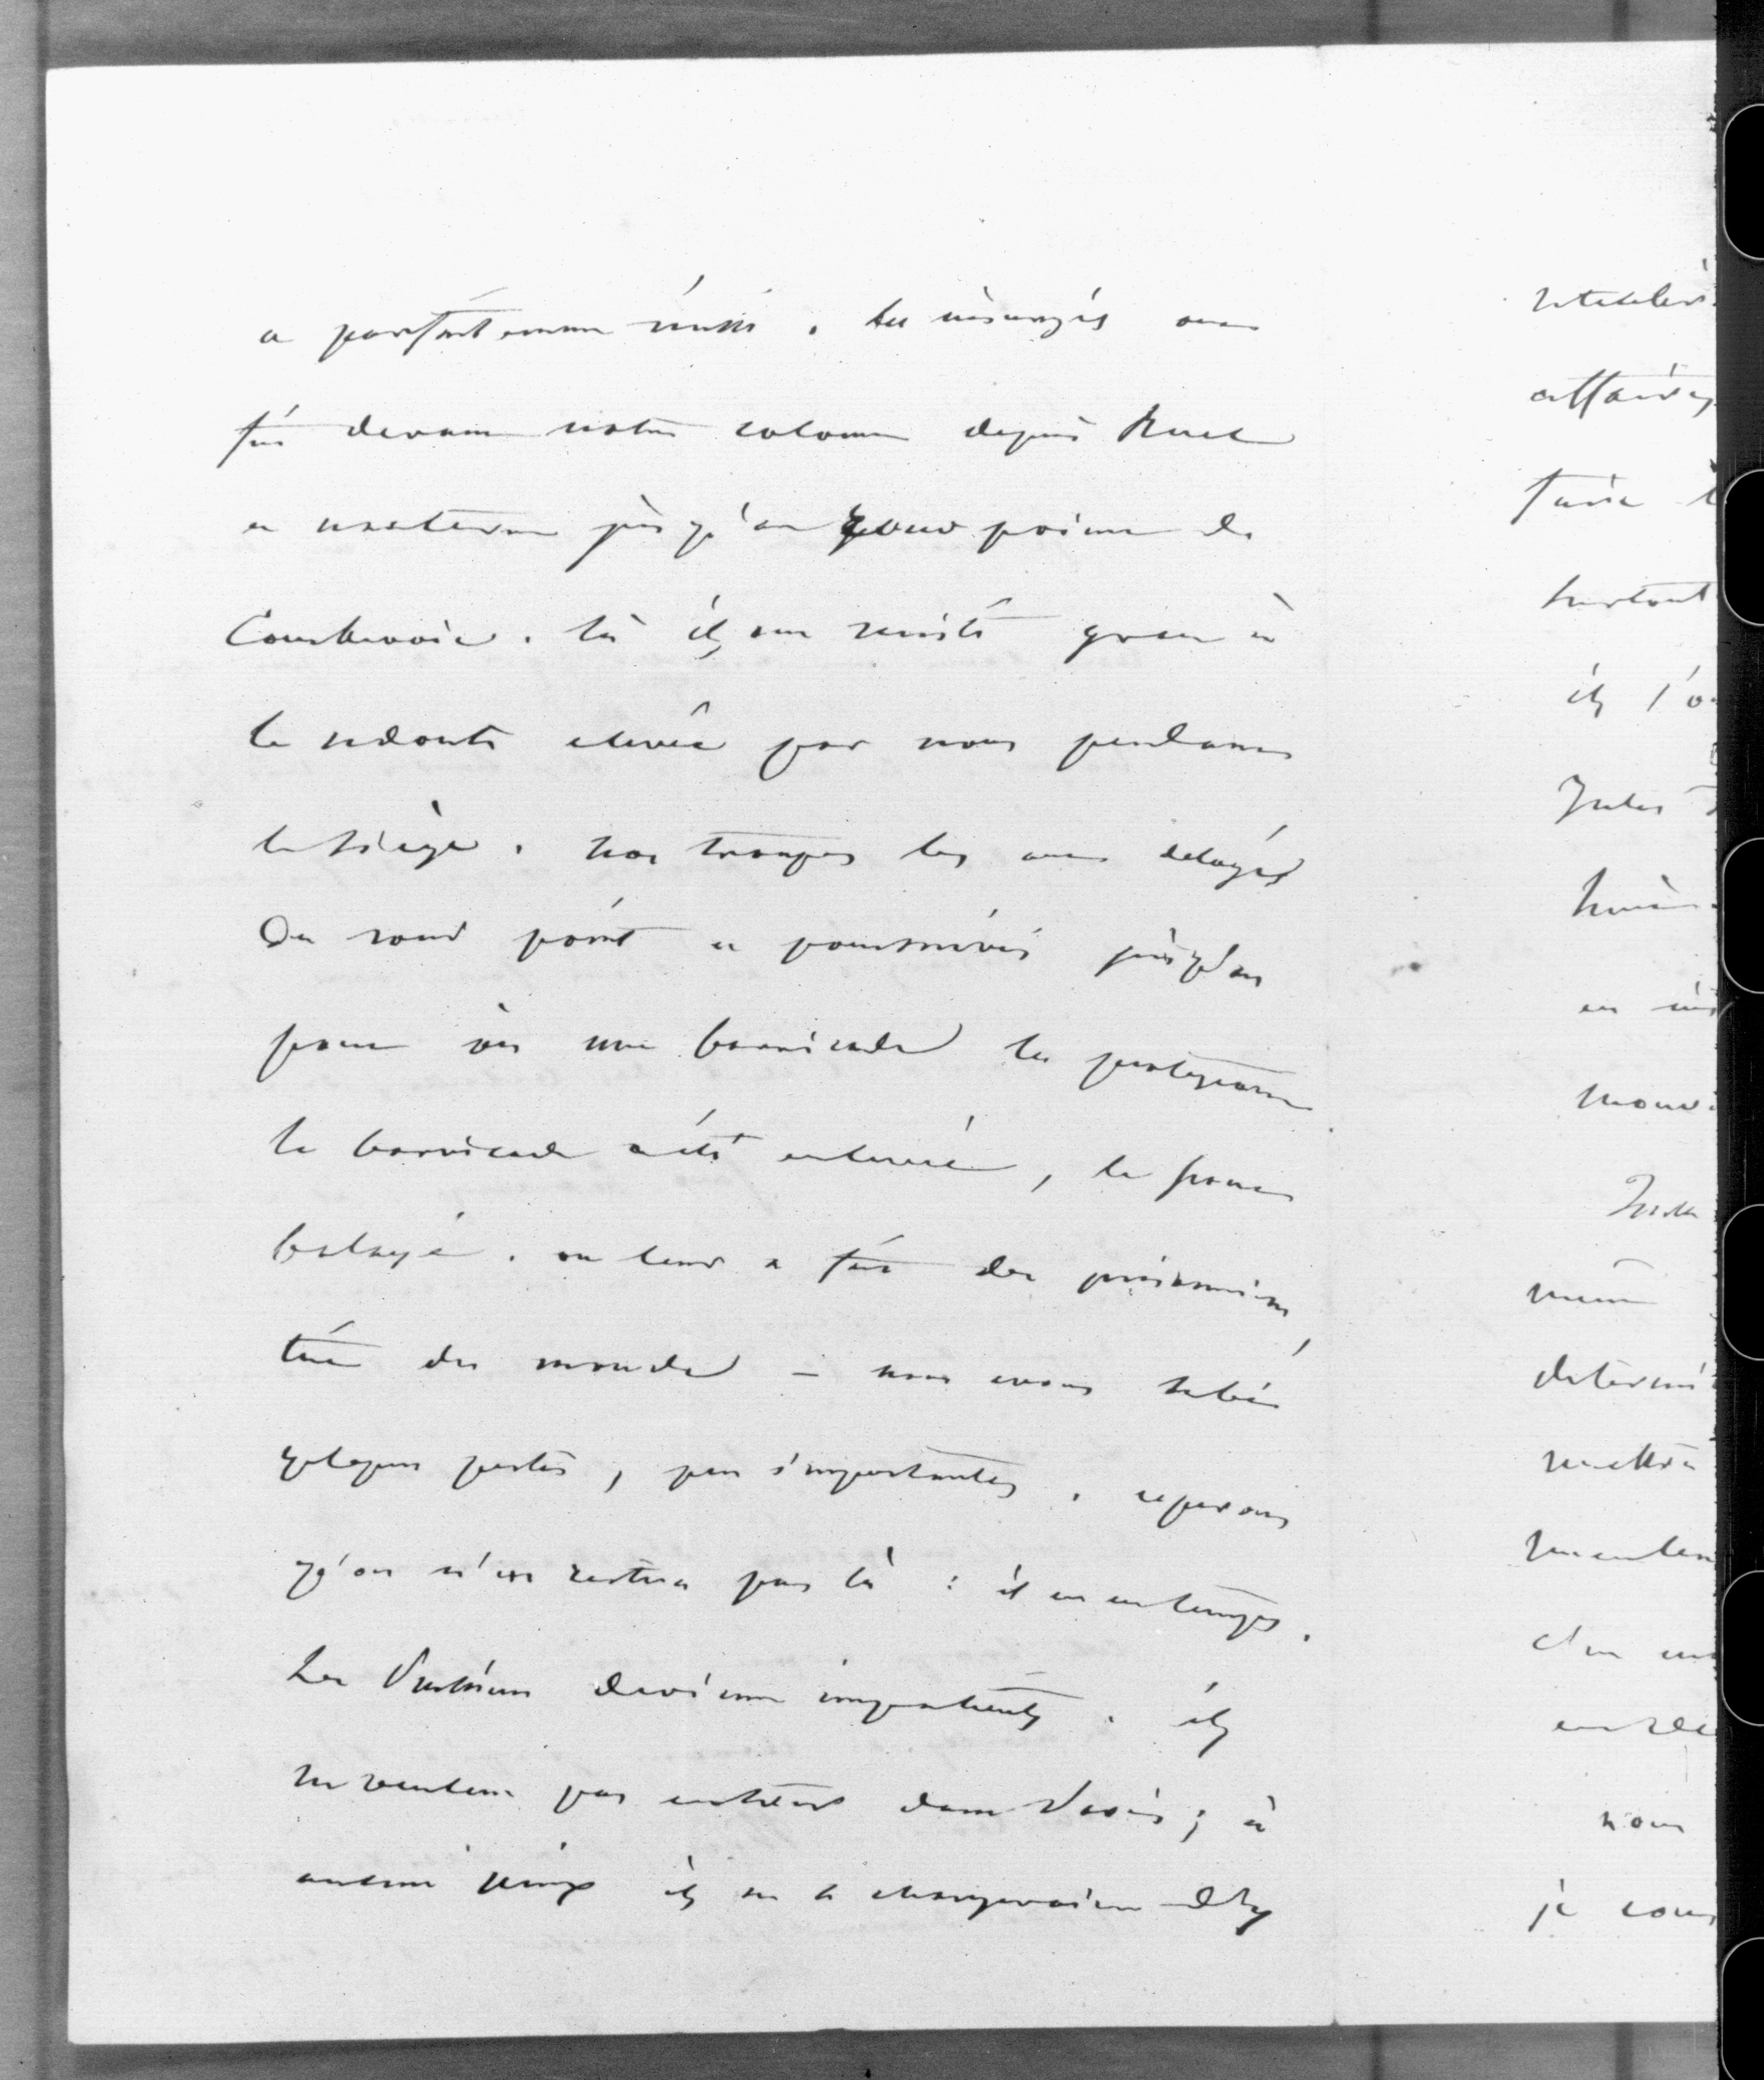 a parfaitement réussi. Les insurgés ont
fui devant notre colonne depuis Rueil
et Nanterre jusqu'au rond point de
Courbevoie. là ils ont résisté grace à
la redoute élevée par nous pendant
le siège. nos troupes les ont délogés
Du rond point et poursuivis jusqu'au
pont où une barricade les protegeait
la barricade a été enlevée, le pont
balayé. on leur a fait des prisonniers,
tué du monde – nous avons subi
quelques pertes, peu importantes. esperons
qu'on n'en restera pas là : il en est temps.
Les Prussiens deviennent impatients. ils
ne veulent pas entrer dans Paris ; à
aucun prix ils ne se chargeraient
affaires
faire
surtout
ils s'o
Jules
en
mouv
même
determi
mettre
nous
je